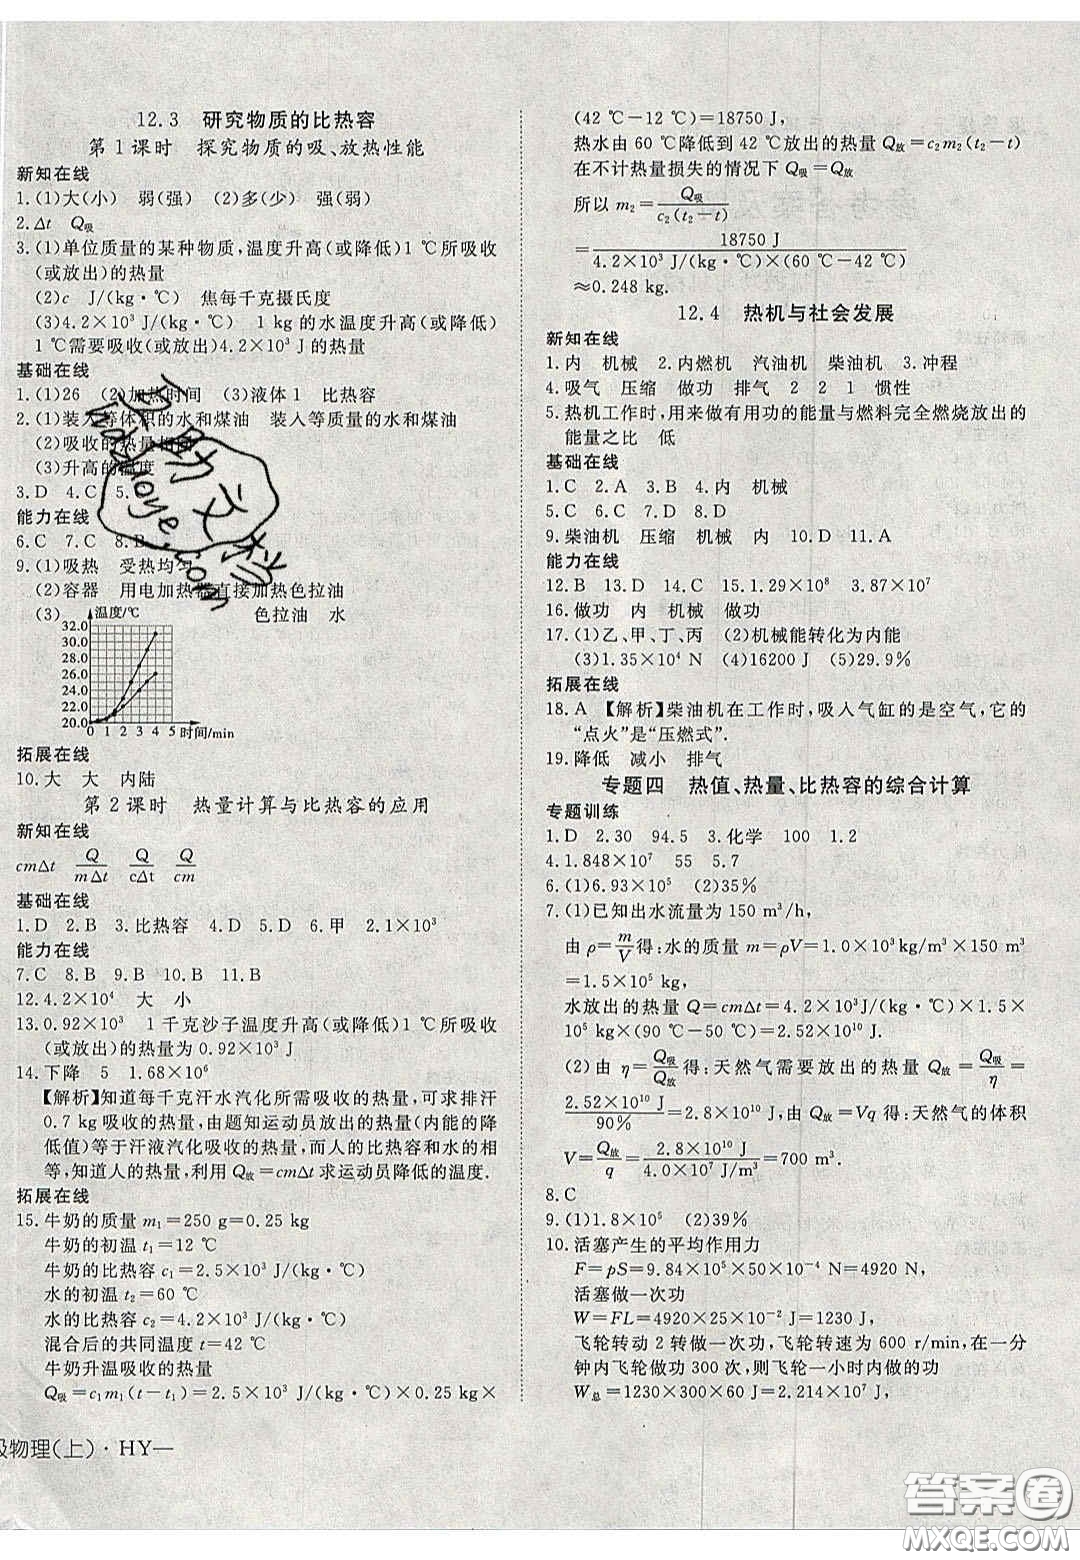 12.3 研究物质的比热容
第1课时 探究物质的吸、放热性能
新知在线
1.(1)大(小) 弱(强) (2)多(少) 强(弱)
2.Δt Q吸
3.(1)单位质量的某种物质,温度升高(或降低)1 ℃所吸收
(或放出)的热量
(2)c J/(kg·℃) 焦每千克摄氏度
(3)4.2×10³ J/(kg·℃) 1 kg的水温度升高(或降低)
1℃需要吸收(或放出)4.2×10³ J的热量
基础在线
1.(1)26 (2)加热时间 (3)液体1 比热容
2.(1)装入等体积的水和煤油 装入等质量的水和煤油
(2)吸收的热量相同
(3)升高的温度
3.D 4.C 5.
能力在线
6.C 7.C 8.B
9.(1)吸热 受热均匀
(2)容器 用电加热器直接加热色拉油
(3) 色拉油 水
温度/℃
32.0
30.0
28.0
26.0
24.0
22.0
20.0
0 1 2 3 4 5 时间/min
拓展在线
10.大 大 内陆
第2课时 热量计算与比热容的应用
新知在线
cmΔt Q/mΔt Q/cΔt Q/cm
基础在线
1.D 2.B 3.比热容 4.D 5.B 6.甲 2.1×10³
能力在线
7.C 8.B 9.B 10.B 11.B
12.4.2×10⁴ 大 小
13.0.92×10³ 1千克沙子温度升高(或降低)1 ℃所吸收
(或放出)的热量为0.92×10³ J
14.下降 5 1.68×10⁶
【解析】知道每千克汗水汽化所需吸收的热量,可求排汗
0.7 kg吸收的热量,由题知运动员放出的热量(内能的降
低值)等于汗液汽化吸收的热量,而人的比热容和水的相
等,知道人的热量,利用Q放=cmΔt求运动员降低的温度.
拓展在线
15.牛奶的质量m₁=250 g=0.25 kg
牛奶的初温t₁=12 ℃
牛奶的比热容c₁=2.5×10³ J/(kg·℃)
水的初温t₂=60 ℃
水的比热容c₂=4.2×10³ J/(kg·℃)
混合后的共同温度t=42 ℃
牛奶升温吸收的热量
Q吸=c₁m₁(t-t₁)=2.5×10³ J/(kg·℃)×0.25 kg×
级物理(上)·HY—
(42 ℃-12 ℃)=18750 J,
热水由60 ℃降低到42 ℃放出的热量Q放=c₂m₂(t₂-t)
在不计热量损失的情况下Q吸=Q放
所以m₂=Q吸/c₂(t₂-t)
=18750 J/4.2×10³ J/(kg·℃)×(60 ℃-42 ℃)
≈0.248 kg.
12.4 热机与社会发展
新知在线
1.内 机械 2.内燃机 汽油机 柴油机 3.冲程
4.吸气 压缩 做功 排气 2 2 1 惯性
5.热机工作时,用来做有用功的能量与燃料完全燃烧放出的
能量之比 低
基础在线
1.C 2.A 3.B 4.内 机械
5.C 6.D 7.D 8.D
9.柴油机 压缩 机械 内 10.D 11.A
能力在线
12.B 13.D 14.C 15.1.29×10⁸ 3.87×10⁷
16.做功 内 机械 做功
17.(1)乙、甲、丁、丙 (2)机械能转化为内能
(3)1.35×10⁴ N (4)16200 J (5)29.9%
拓展在线
18.A 【解析】柴油机在工作时,吸入气缸的是空气,它的
“点火”是“压燃式”.
19.降低 减小 排气
专题四 热值、热量、比热容的综合计算
专题训练
1.D 2.30 94.5 3.化学 100 1.2
4.1.848×10⁷ 55 5.7
6.(1)6.93×10⁵ (2)35%
7.(1)已知出水流量为150 m³/h,
由ρ=m/V得:水的质量m=ρV=1.0×10³kg/m³×150 m³
=1.5×10⁵ kg,
水放出的热量Q=cmΔt=4.2×10³ J/(kg·℃)×1.5×
10⁵ kg×(90 ℃-50 ℃)=2.52×10¹⁰ J,
(2)由η=Q吸/Q放得:天然气需要放出的热量Q放=Q吸/η=
2.52×10¹⁰ J/90%=2.8×10¹⁰ J,由Q放=Vq得:天然气的体积
V=Q放/q=2.8×10¹⁰ J/4.0×10⁷ J/m³=700 m³.
8.C
9.(1)1.8×10⁵ (2)39%
10.活塞产生的平均作用力
F=pS=9.84×10⁵×50×10⁻⁴ N=4920 N,
活塞做一次功
W=FL=4920×25×10⁻² J=1230 J,
飞轮转动2转做一次功,飞轮转速为600 r/min,在一分
钟内飞轮做功300次,则飞轮一小时内做的功
W总=1230×300×60 J=2.214×10⁷ J,
答案圈
MXQE.COM